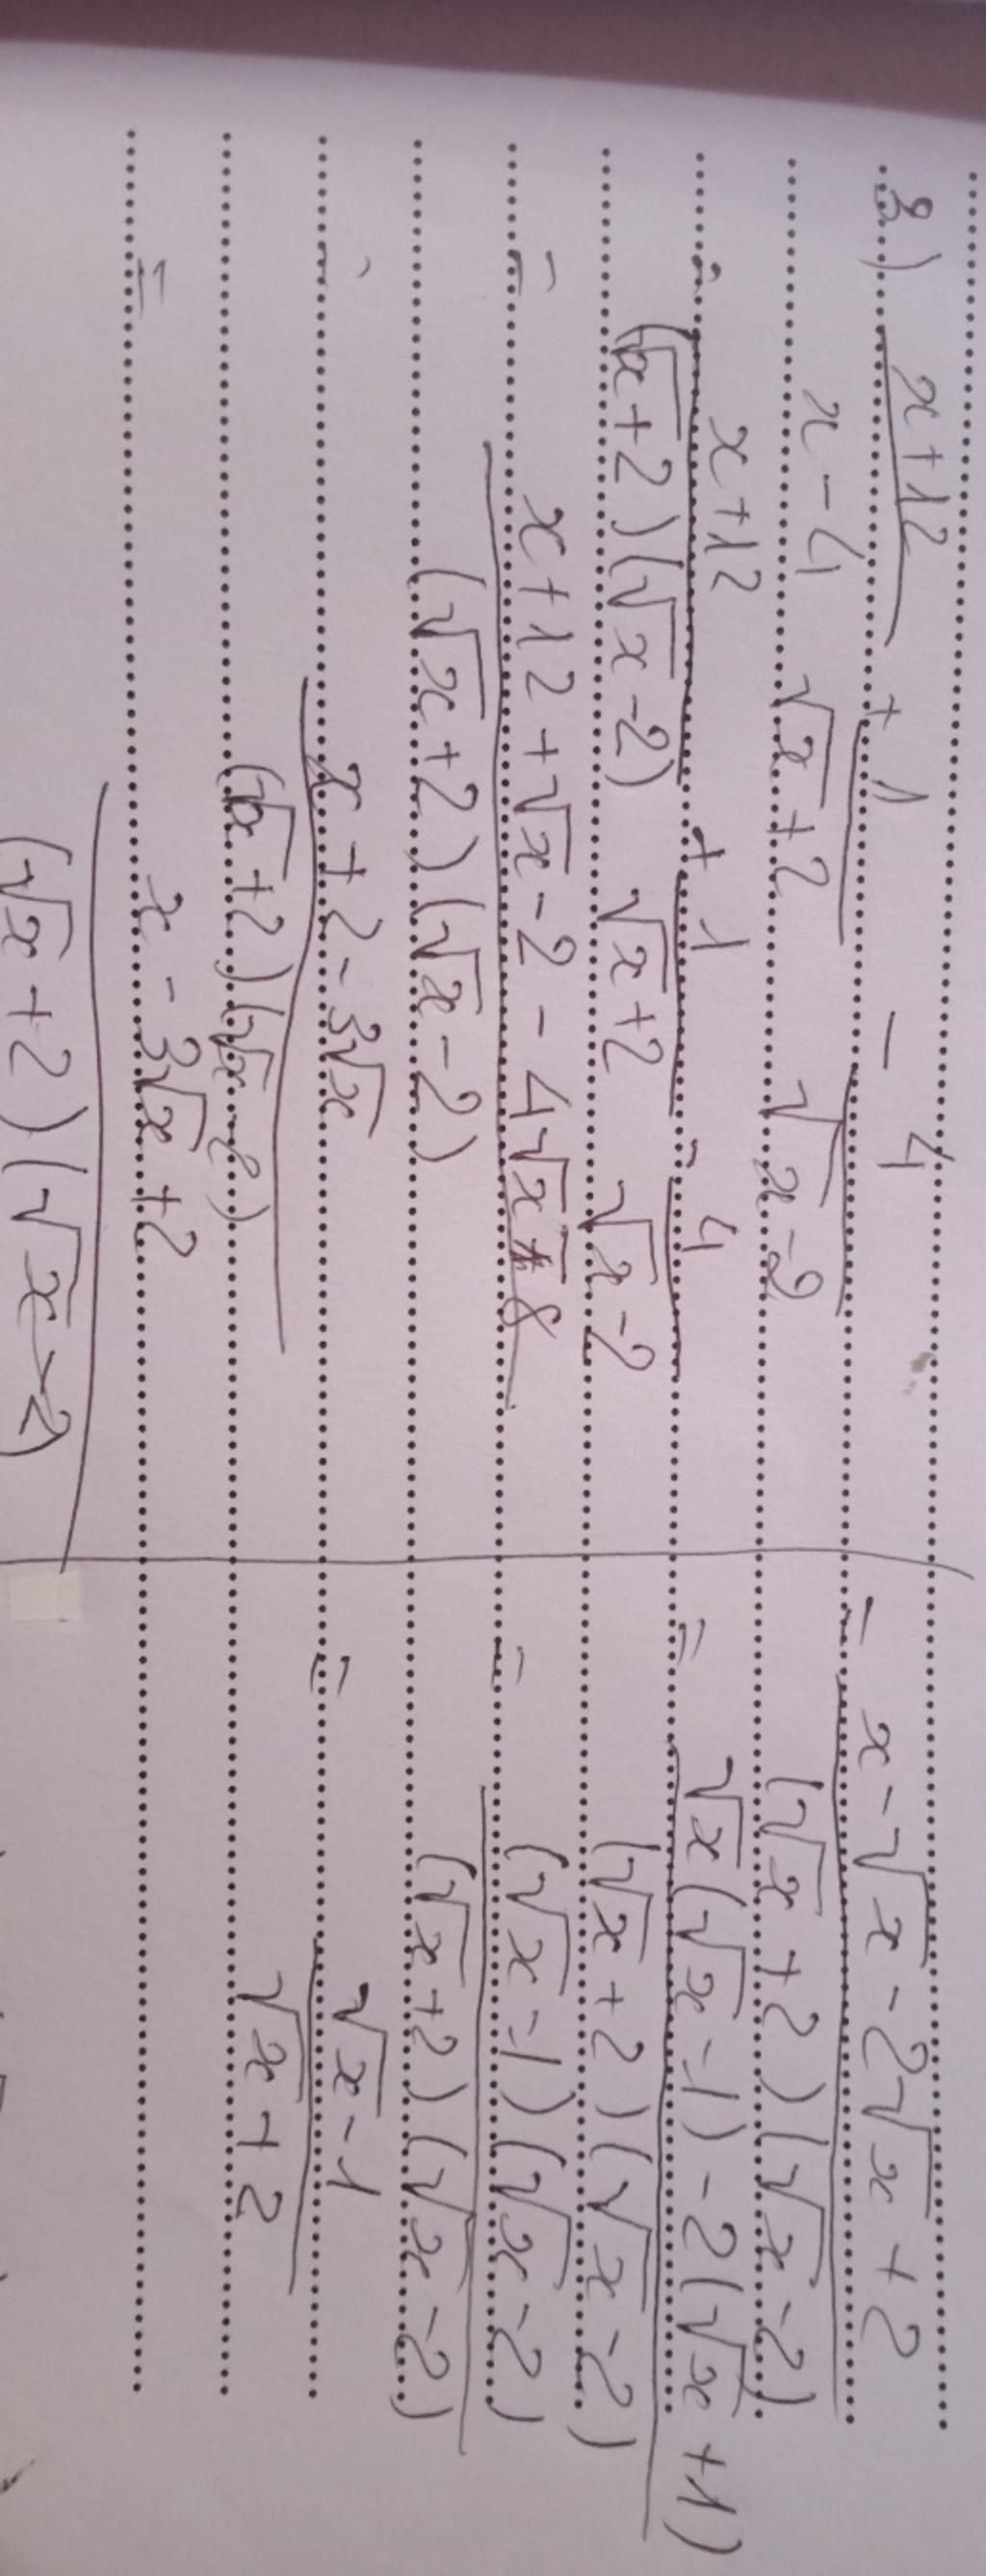 3) \frac{x+12}{x-4} + \frac{1}{\sqrt{x}+2} - \frac{4}{\sqrt{x}-2}
= \frac{x+12}{(\sqrt{x}+2)(\sqrt{x}-2)} + \frac{1}{\sqrt{x}+2} - \frac{4}{\sqrt{x}-2}
= \frac{x+12+\sqrt{x}-2-4\sqrt{x}-8}{(\sqrt{x}+2)(\sqrt{x}-2)}
= \frac{x+2-3\sqrt{x}}{(\sqrt{x}+2)(\sqrt{x}-2)}
= \frac{x-3\sqrt{x}+2}{(\sqrt{x}+2)(\sqrt{x}-2)}
= \frac{x-\sqrt{x}-2\sqrt{x}+2}{(\sqrt{x}+2)(\sqrt{x}-2)}
= \frac{\sqrt{x}(\sqrt{x}-1)-2(\sqrt{x}+1)}{(\sqrt{x}+2)(\sqrt{x}-2)}
= \frac{(\sqrt{x}-1)(\sqrt{x}-2)}{(\sqrt{x}+2)(\sqrt{x}-2)}
= \frac{\sqrt{x}-1}{\sqrt{x}+2}